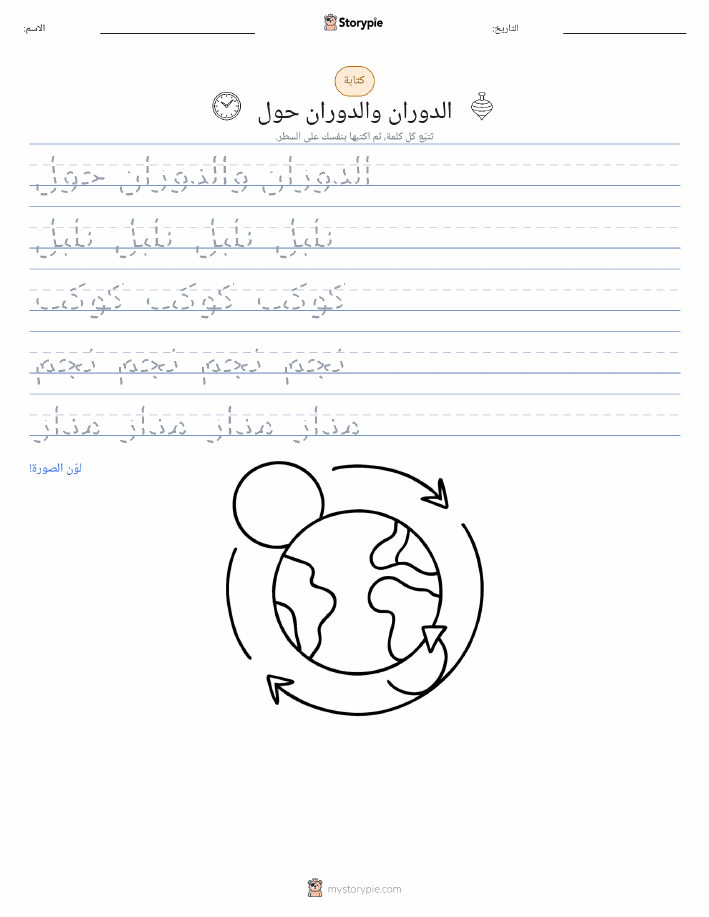 الاسم:
Storypie
التاريخ:
كتابة
الدوران والدوران حول
تتبّع كل كلمة، ثم اكتبها بنفسك على السطر.
الدوران والدوران حول
كوكب كوكب كوكب
نجم نجم نجم نجم
مدار مدار مدار مدار
لوّن الصورة!
mystorypie.com